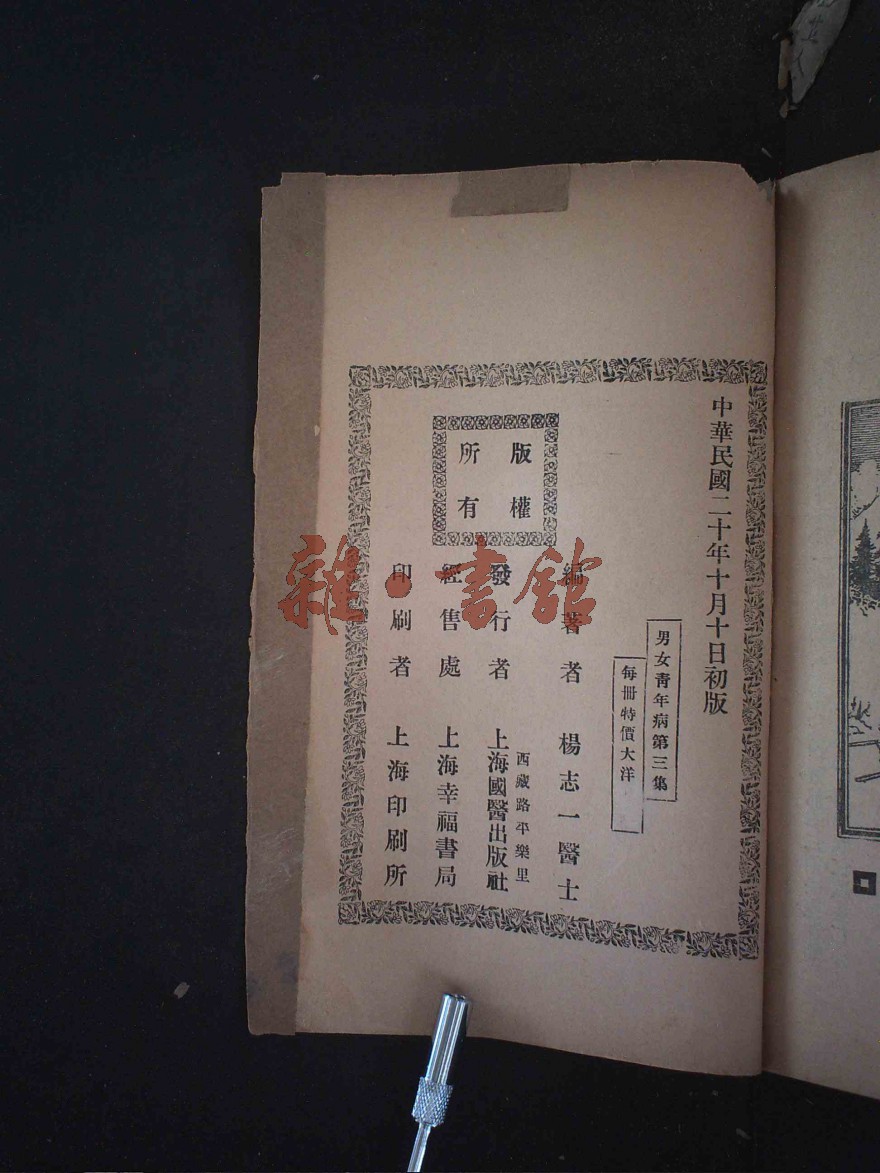 中華民國二十年十月十日初版
男女靑年病第三集
每冊特價大洋
版權
所有
編著者 楊志一醫士
西藏路平樂里
發行者 上海國醫出版社
經售處 上海幸福書局
印刷者 上海印刷所
雜·書館